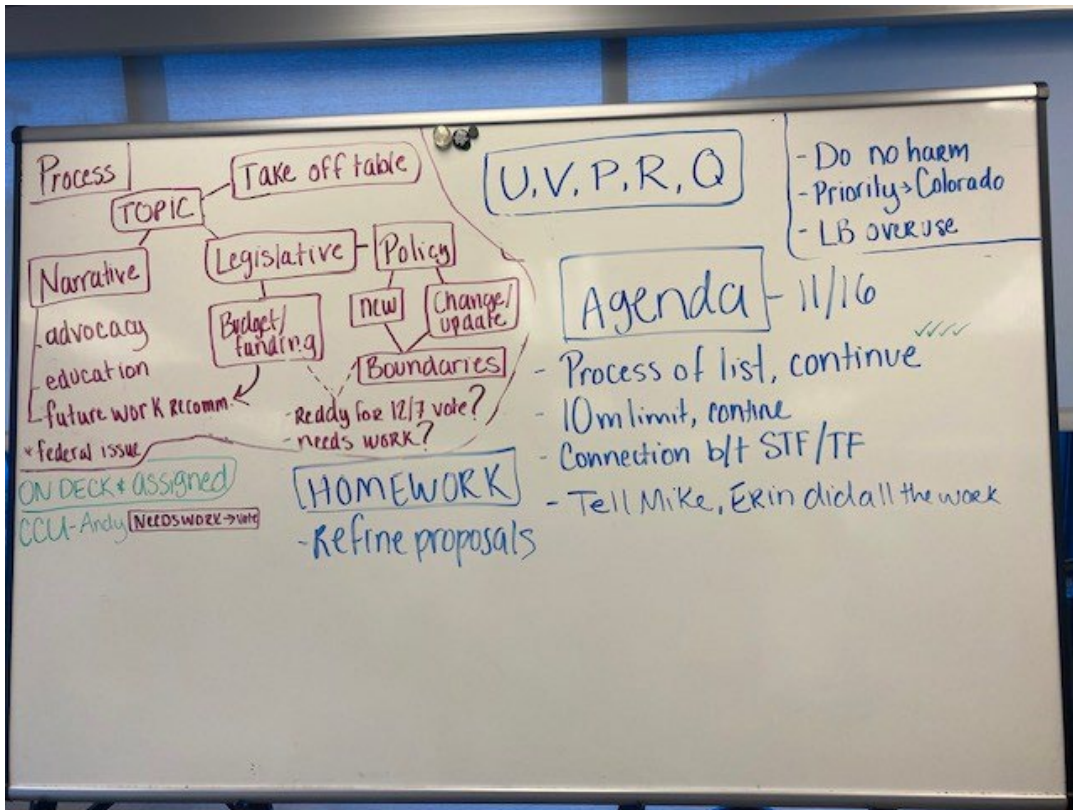 Process
Take off table
TOPIC
Narrative
Legislative
Policy
advocacy
education
future work recomm.
* federal issue
Budget/
funding
new
Change/
update
Boundaries
- Ready for 12/7 vote?
- needs work?
ON DECK & assigned
CCU-Andy NEEDS WORK → vote
HOMEWORK
- Refine proposals
U, V, P, R, Q
- Do no harm
- Priority → Colorado
- LB overuse
Agenda - 11/16
- Process of list, continue
- 10m limit, contine
- Connection b/t STF/TF
- Tell Mike, Erin did all the work